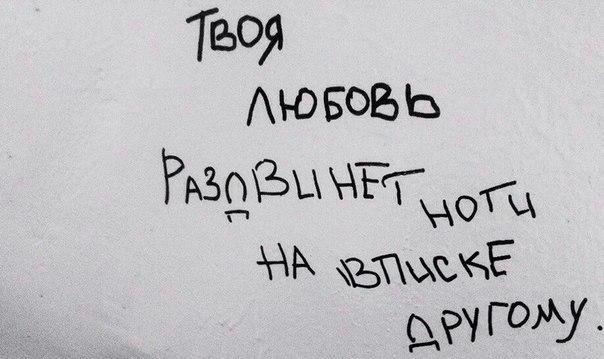 ТВОЯ
ЛЮБОВЬ
РАЗДВИНЕТ НОГИ
НА ВПИСКЕ
ДРУГОМУ.